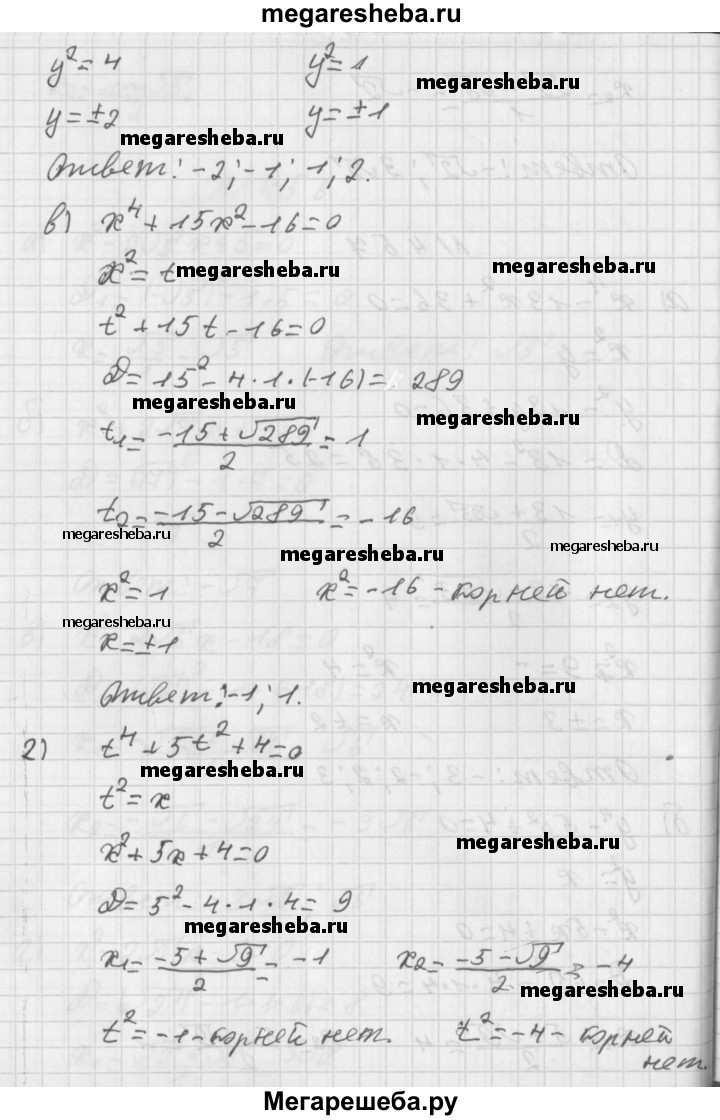 megaresheba.ru
y² = 4 y² = 1
megaresheba.ru
y = ±2 y = ±1
megaresheba.ru
Ответ: -2; -1; 1; 2.
в) x⁴ + 15x² - 16 = 0
x² = t
megaresheba.ru megaresheba.ru
t² + 15t - 16 = 0
D = 15² - 4·1·(-16) = 289
megaresheba.ru
megaresheba.ru
t₁ = (-15 + √289)/2 = 1
t₂ = (-15 - √289)/2 = -16
megaresheba.ru megaresheba.ru megaresheba.ru
x² = 1 x² = -16 - корней нет.
megaresheba.ru
x = ±1
Ответ: -1; 1.
megaresheba.ru
г) t⁴ + 5t² + 4 = 0
megaresheba.ru
t² = x
x² + 5x + 4 = 0
megaresheba.ru
D = 5² - 4·1·4 = 9
megaresheba.ru
x₁ = (-5 + √9)/2 = -1 x₂ = (-5 - √9)/2 = -4
megaresheba.ru
t² = -1 - корней нет. t² = -4 - корней
нет.
Мегарешеба.ру